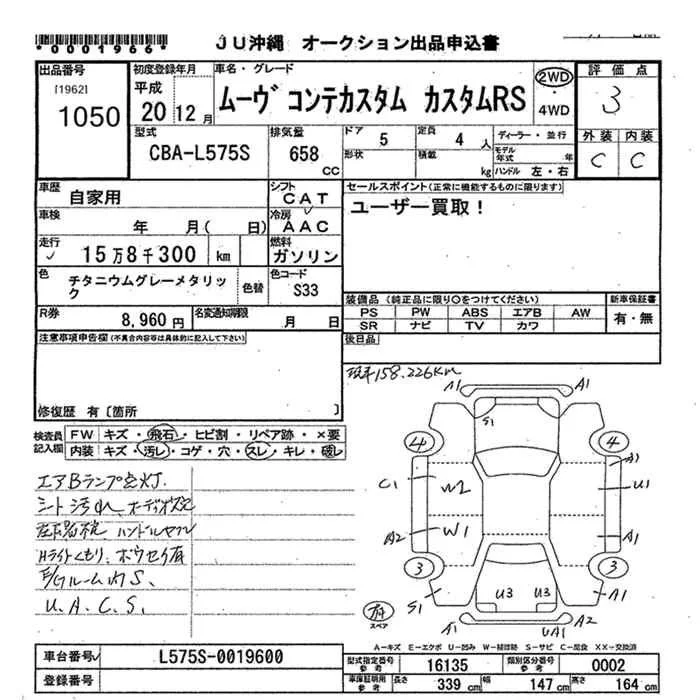 *0001966*
JU沖縄 オークション出品申込書
出品番号
[1962]
1050
初度登録年月
平成
20 12月
車名・グレード
ムーヴ コンテカスタム カスタムRS
2WD
・
4WD
評価点
3
外装 内装
C C
型式
CBA-L575S
排気量
658
CC
ドア
5
形状
定員
4 人
積載
kg
ディーラー・並行
モデル年式 年
ハンドル 左・右
車歴
自家用
シフト
CAT
車検
年 月( 日)
冷房
AAC
走行
15万8千300 km
燃料
ガソリン
色
チタニウムグレーメタリック
色替
色コード
S33
R券
8,960円
名変通知期限
月 日
セールスポイント(正常に機能するものに限ります)
ユーザー買取!
装備品(純正品に限り○をつけてください)
PS PW ABS エアB AW
SR ナビ TV カワ
新車保証書
有・無
後日品
注意事項申告欄(不具合内容等は具体的に記入して下さい)
修復歴 有〔箇所 〕
現車158.226Km
検査員
記入欄
FW キズ・飛石・ヒビ割・リペア跡・×要
内装 キズ・汚レ・コゲ・穴・スレ・キレ・破レ
エアBランプ点灯.
シート汚れ、
Hライトくもり.
U.A.C.S.
A1 A1
S1
4 4
A1
C1 W2 U1
A2 W1 A1
3 3
S1 U3 U3 A1
A1 UA1 A2
スペア
A-キズ E-エクボ U-凹み W-補修跡 S-サビ C-腐食 XX-交換済
車台番号
L575S-0019600
登録番号
型式指定番号
参考
16135
類別区分番号
参考
0002
車庫証明用
参考
長さ
339 cm
幅
147 cm
高さ
164 cm